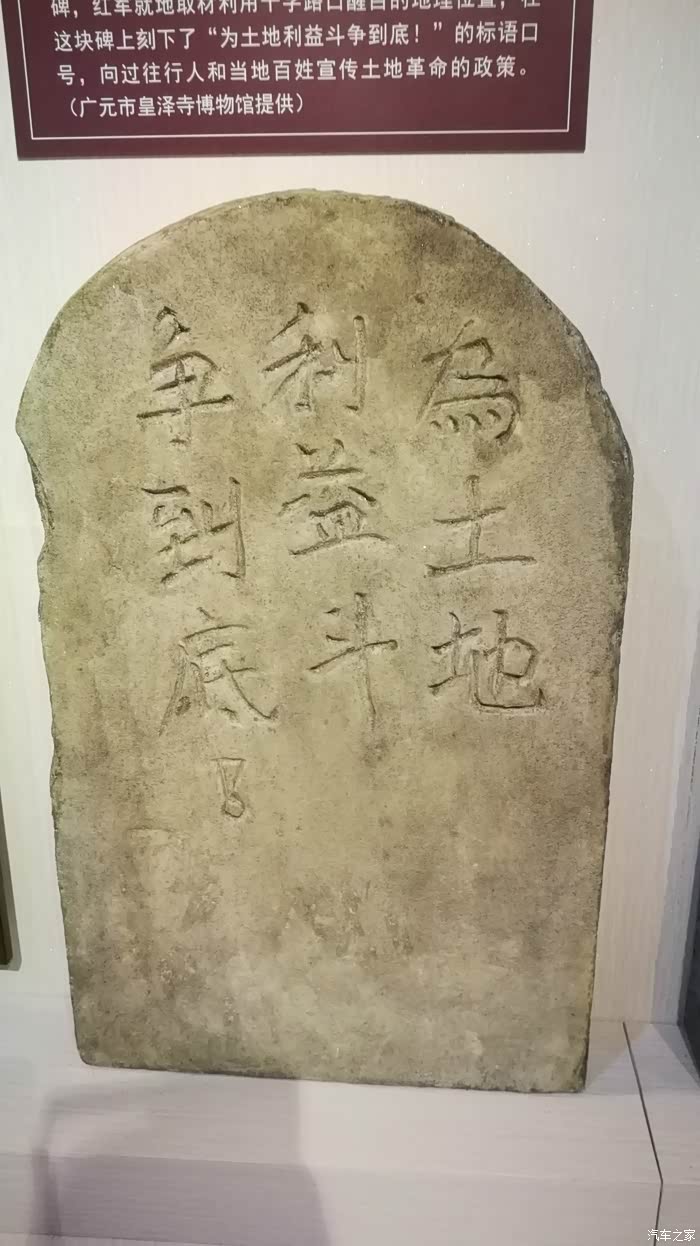 碑，红军就地取材利用十字路口醒目的地理位置，在
这块碑上刻下了“为土地利益斗争到底！”的标语口
号，向过往行人和当地百姓宣传土地革命的政策。
（广元市皇泽寺博物馆提供）
為土地
利益斗
争到底！
汽车之家